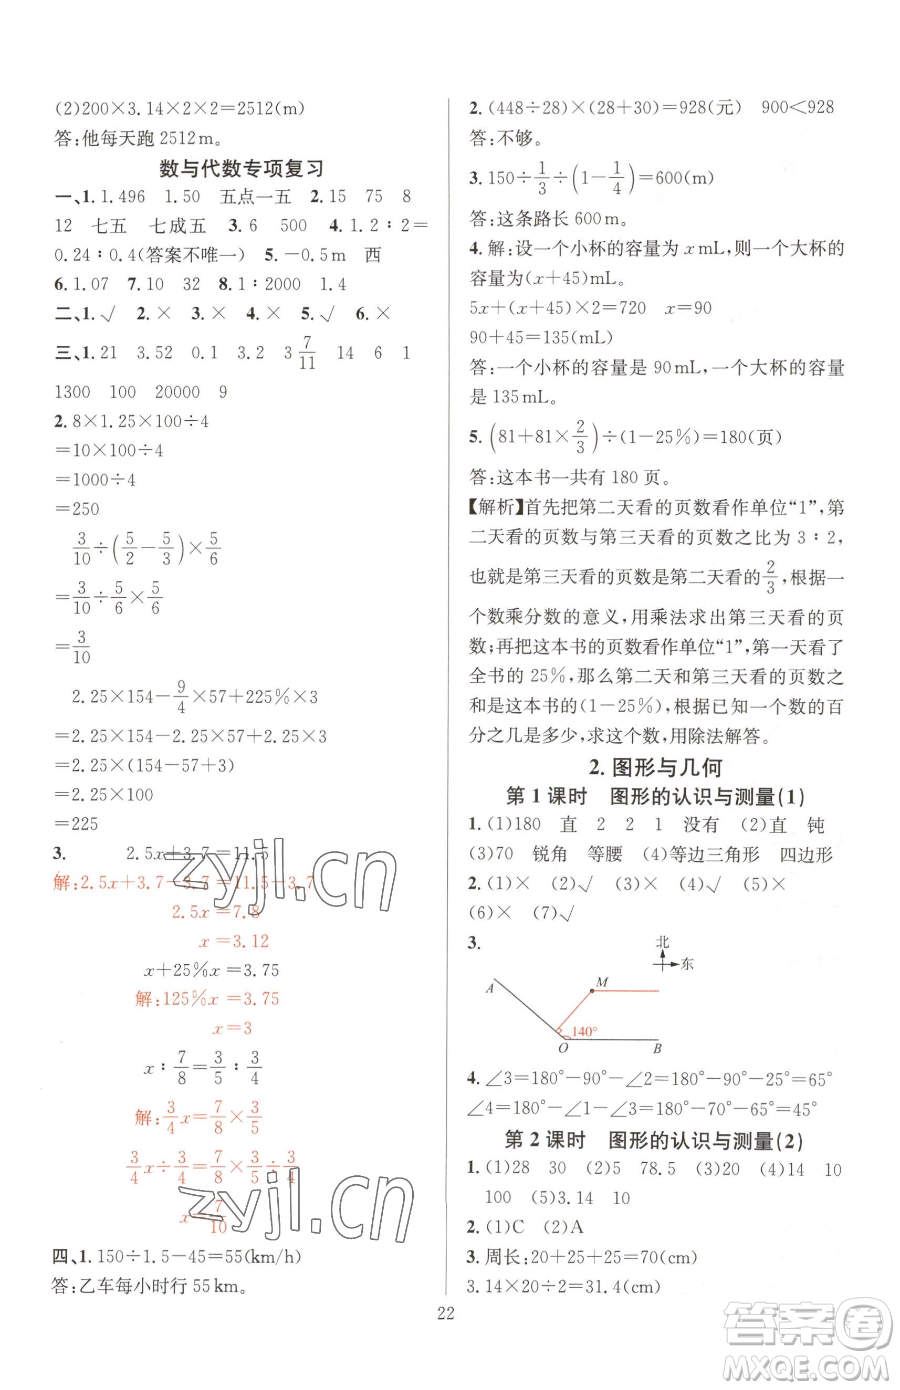 (2)200×3.14×2×2=2512(m)
答:他每天跑2512m。
数与代数专项复习
一、1.1.496 1.50 五点一五 2.15 75 8
12 七五 七成五 3.6 500 4.1.2∶2=
0.24∶0.4(答案不唯一) 5.-0.5m 西
6.1.07 7.10 32 8.1∶2000 1.4
二、1.√ 2.× 3.× 4.× 5.√ 6.×
三、1.21 3.52 0.1 3.2 3 7/11 14 6 1
1300 100 20000 9
2.8×1.25×100÷4
=10×100÷4
=1000÷4
=250
3/10÷(5/2-5/3)×5/6
=3/10÷5/6×5/6
=3/10
2.25×154-9/4×57+225%×3
=2.25×154-2.25×57+2.25×3
=2.25×(154-57+3)
=2.25×100
=225
3. 2.5x+3.7=11.5
解:2.5x+3.7-3.7=11.5-3.7
2.5x=7.8
x=3.12
x+25%x=3.75
解:125%x=3.75
x=3
x∶7/8=3/5∶3/4
解:3/4x=7/8×3/5
3/4x÷3/4=7/8×3/5÷3/4
x=7/10
四、1.150÷1.5-45=55(km/h)
答:乙车每小时行55km。
2.(448÷28)×(28+30)=928(元) 900<928
答:不够。
3.150÷1/3÷(1-1/4)=600(m)
答:这条路长600m。
4.解:设一个小杯的容量为xmL,则一个大杯的
容量为(x+45)mL。
5x+(x+45)×2=720 x=90
90+45=135(mL)
答:一个小杯的容量是90mL,一个大杯的容量
是135mL。
5.(81+81×2/3)÷(1-25%)=180(页)
答:这本书一共有180页。
【解析】首先把第二天看的页数看作单位“1”,第
二天看的页数与第三天看的页数之比为3∶2,
也就是第三天看的页数是第二天看的2/3,根据一
个数乘分数的意义,用乘法求出第三天看的页
数;再把这本书的页数看作单位“1”,第一天看了
全书的25%,那么第二天和第三天看的页数之
和是这本书的(1-25%),根据已知一个数的百
分之几是多少,求这个数,用除法解答。
2.图形与几何
第1课时 图形的认识与测量(1)
1.(1)180 直 2 2 1 没有 (2)直 钝
(3)70 锐角 等腰 (4)等边三角形 四边形
2.(1)× (2)√ (3)√ (4)× (5)×
(6)× (7)√
3.
北
东
A
M
140°
O
B
4.∠3=180°-90°-∠2=180°-90°-25°=65°
∠4=180°-∠2-∠3=180°-70°-65°=45°
第2课时 图形的认识与测量(2)
1.(1)28 30 (2)5 78.5 (3)20 (4)14 10
100 (5)3.14 10
2.(1)C (2)A
3.周长:20+25+25=70(cm)
3.14×20÷2=31.4(cm)
22
zyjl.cn
zyjl.cn
答案圈
MXQE.COM